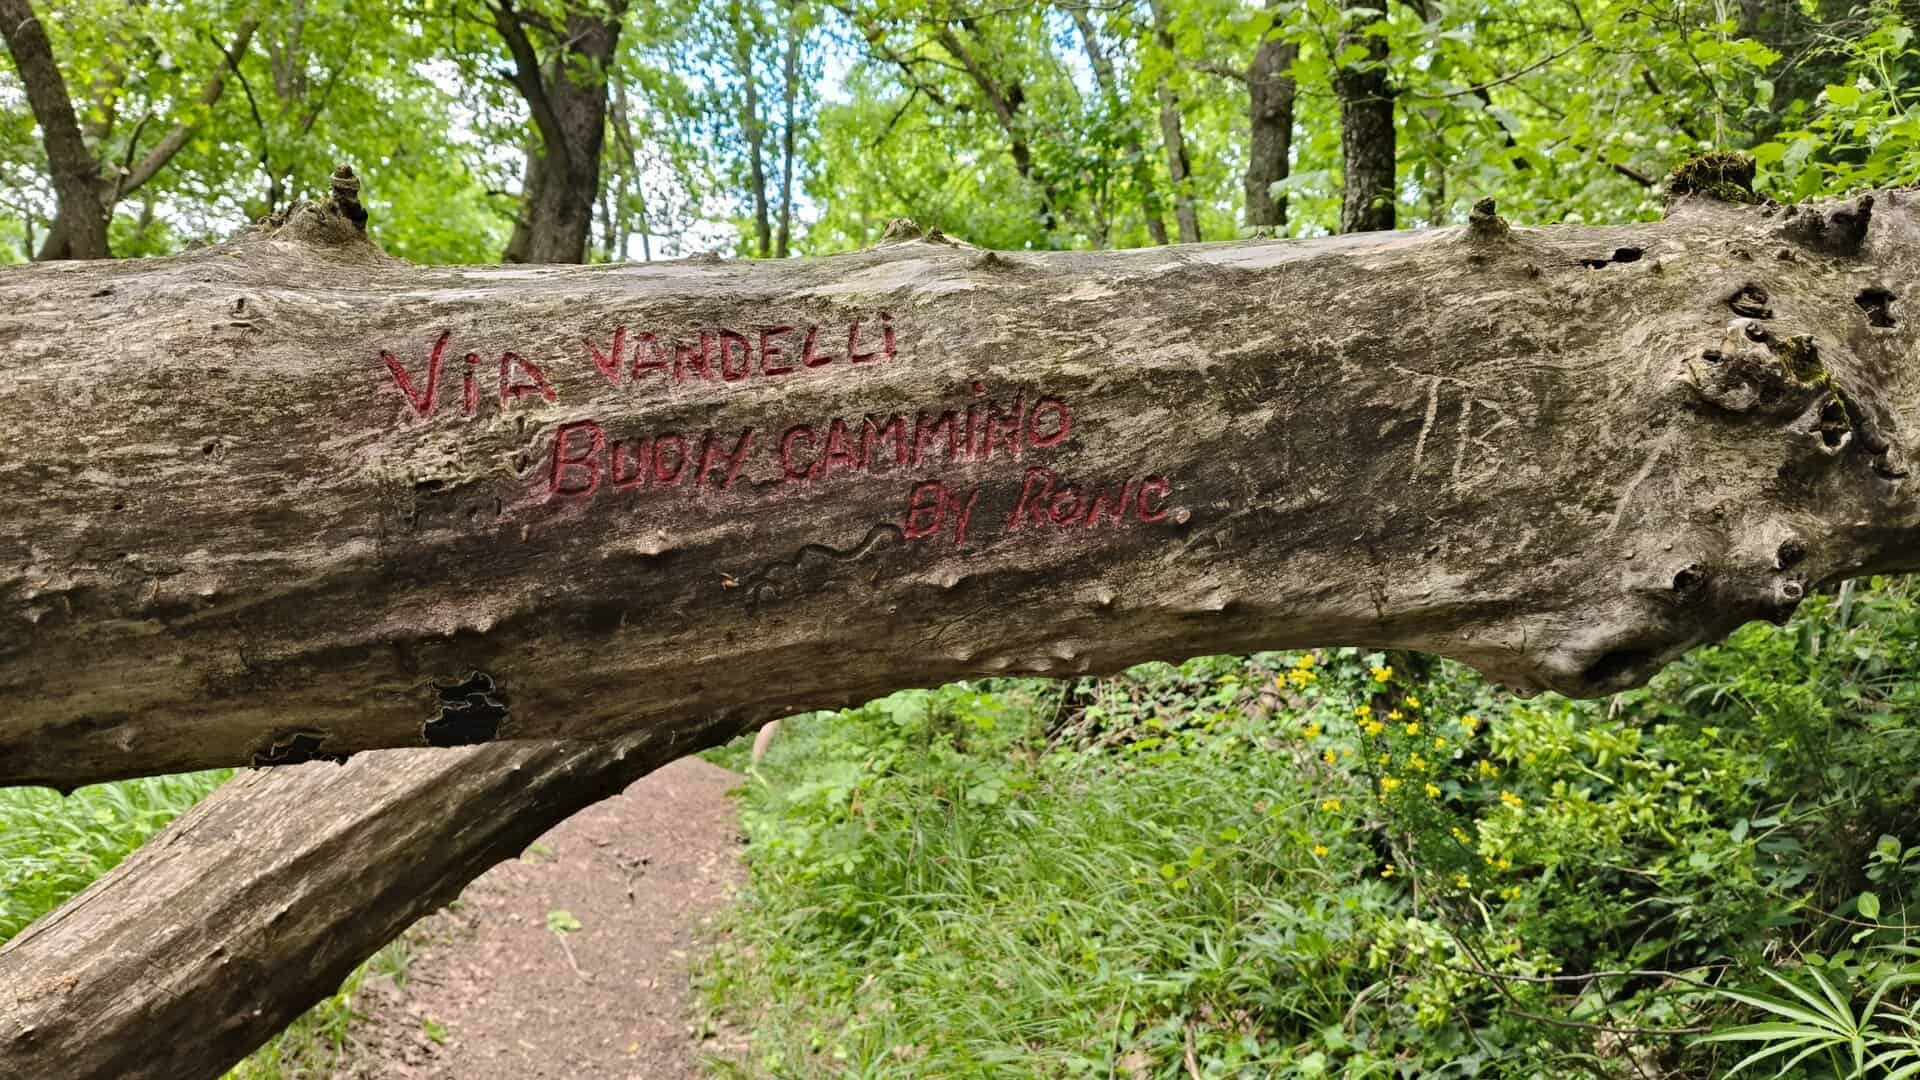 ViA VANDELLi
BUON CAMMiNO
BY RONC
TB